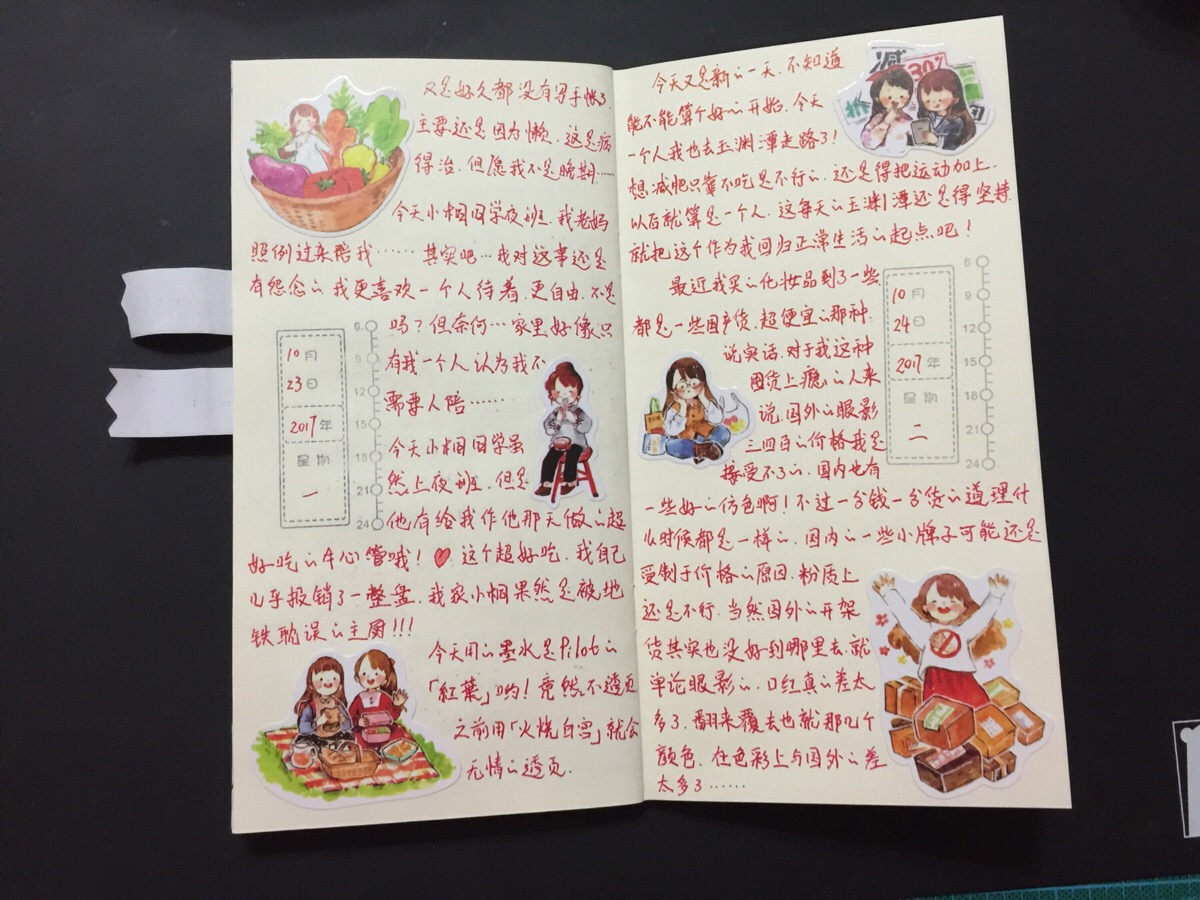 又是好久都没有写手帐了.
主要还是因为懒. 这是病
得治. 但愿我不是晚期……
今天小桐同学夜班. 我老妈
照例过来陪我…… 其实吧…我对这事还是
有怨念的. 我更喜欢一个人待着. 更自由. 不是
吗? 但奈何… 家里好像只
有我一个人认为我不
需要人陪……
今天小桐同学虽
然上夜班. 但是
他有给我作他那天做的超
好吃的牛心管哦! ♥ 这个超好吃. 我自己
几乎报销了一整盘. 我家小桐果然是被地
铁耽误的主厨!!!
今天用的墨水是Pilot的
「紅葉」哟! 竟然不透页
之前用「火烧白宫」就会
无情的透页.
10月
23日
2017年
星期
一
6
9
12
15
18
21
24
今天又是新的一天. 不知道
能不能算个好的开始. 今天
一个人我也去玉渊潭走路了!
想减肥只靠不吃是不行的. 还是得把运动加上.
以后就算是一个人. 这每天的玉渊潭还是得坚持.
就把这个作为我回归正常生活的起点吧!
最近我买的化妆品到了一些
都是一些国产货. 超便宜的那种.
说实话. 对于我这种
囤货上瘾的人来
说. 国外的眼影
三四百的价格我是
接受不了的. 国内也有
一些好的仿色啊! 不过一分钱一分货的道理什
么时候都是一样的. 国内的一些小牌子可能还是
受制于价格的原因. 粉质上
还是不行. 当然国外的开架
货其实也没好到哪里去. 就
单论眼影的. 口红真的差太
多了. 翻来覆去也就那几个
颜色. 在色彩上与国外的差
太多了……
10月
24日
2017年
星期
二
6
9
12
15
18
21
24
减
30%